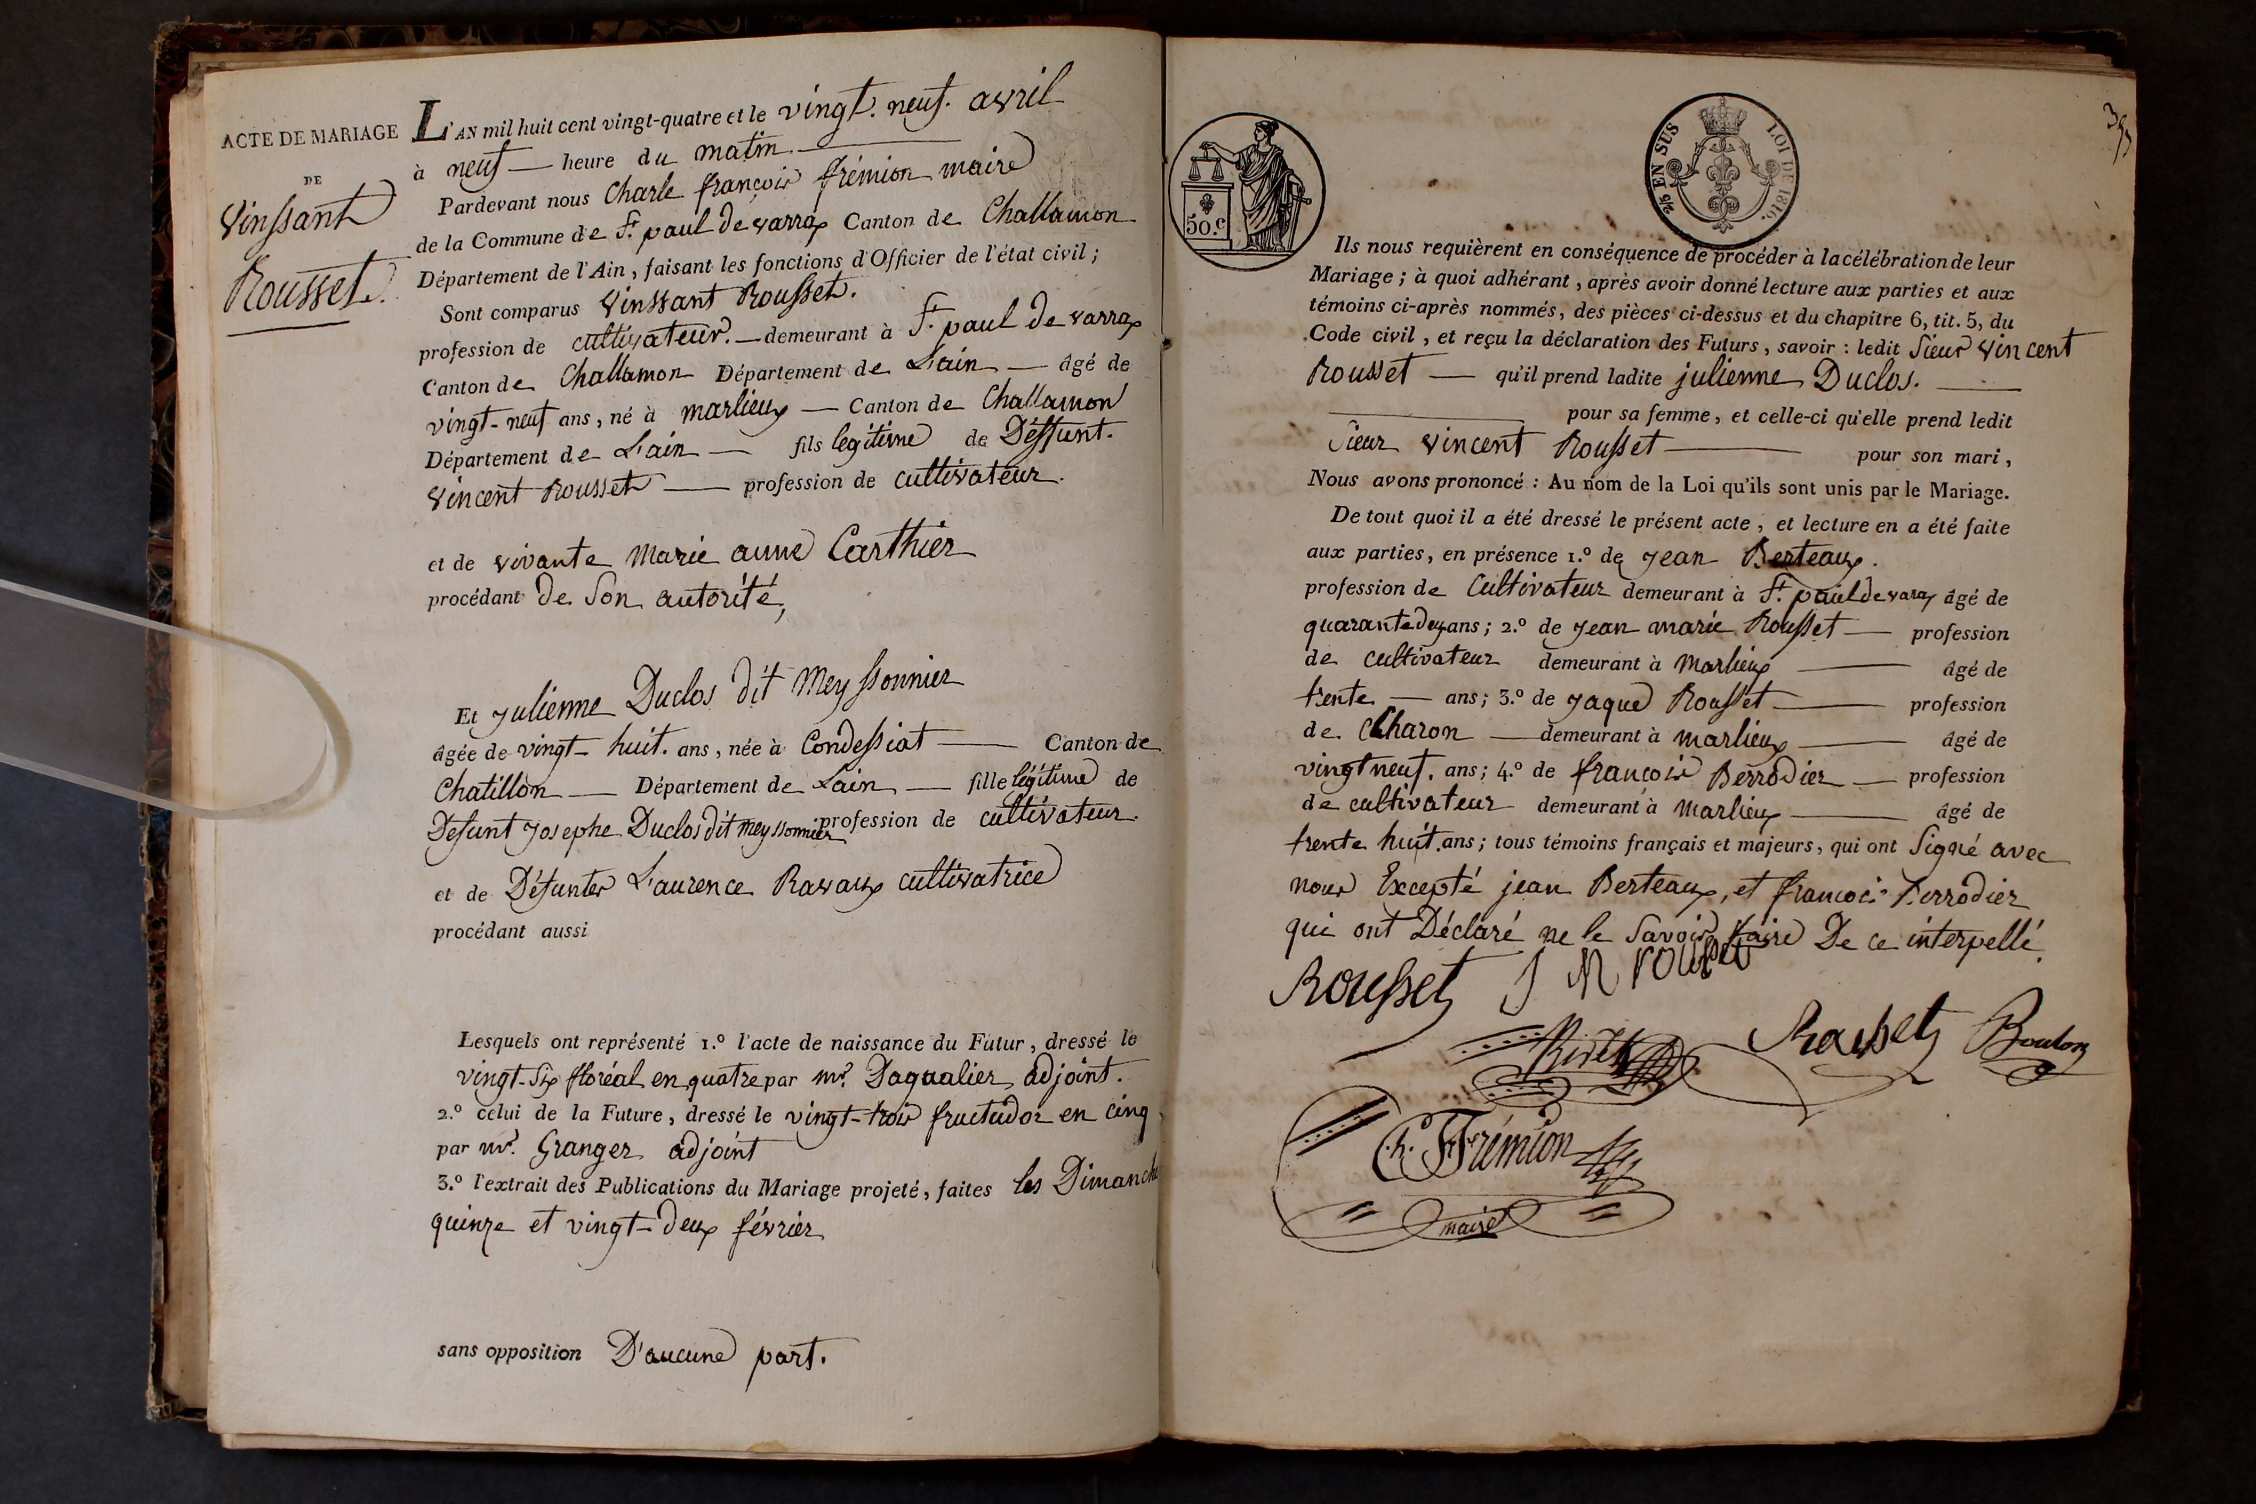 ACTE DE MARIAGE
DE
Vinssant
Rousset.
L'AN mil huit cent vingt-quatre et le vingt. neuf. avril
à neuf — heure du matin. —
Pardevant nous Charle françois frémion maire
de la Commune de St. paul de varrax Canton de Challamon
Département de l'Ain, faisant les fonctions d'Officier de l'état civil;
Sont comparus Vinssant Rousset.
profession de cultivateur. — demeurant à St. paul de varrax
Canton de Challamon Département de L'ain — âgé de
vingt-neuf ans, né à marlieux — Canton de Challamon
Département de L'ain — fils legitime de Déffunt.
Vincent Rousset — profession de cultivateur.
et de vivante Marie anne Carthier
procédant de son autorité,
Et julienne Duclos dit Meyssonnier
âgée de vingt-huit. ans, née à Condessiat — Canton de
Chatillon — Département de Lain — fille légitime de
Defunt josephe Duclos dit meyssonnier profession de cultivateur.
et de Défunter L'aurence Ravaux cultivatrice
procédant aussi
Lesquels ont représenté 1.º l'acte de naissance du Futur, dressé le
vingt-six floréal en quatre par mr. Daqualier adjoint.
2.º celui de la Future, dressé le vingt-trois fructudor en cinq
par mr. Granger adjoint
3.º l'extrait des Publications du Mariage projeté, faites les Dimanche
quinze et vingt-deux février
sans opposition D'aucune part.
50.c
2/5 EN SUS LOI DE 1816.
Ils nous requièrent en conséquence de procéder à la célébration de leur
Mariage; à quoi adhérant, après avoir donné lecture aux parties et aux
témoins ci-après nommés, des pièces ci-dessus et du chapitre 6, tit. 5, du
Code civil, et reçu la déclaration des Futurs, savoir: ledit sieur Vincent
Rousset — qu'il prend ladite julienne Duclos. —
— pour sa femme, et celle-ci qu'elle prend ledit
sieur Vincent Rousset — pour son mari,
Nous avons prononcé: Au nom de la Loi qu'ils sont unis par le Mariage.
De tout quoi il a été dressé le présent acte, et lecture en a été faite
aux parties, en présence 1.º de jean Berteaux.
profession de Cultivateur demeurant à St. paul de varax âgé de
quarante deux ans; 2.º de jean marie Rousset — profession
de cultivateur demeurant à Marlieux — âgé de
trente — ans; 3.º de jaque Rousset — profession
de Charon — demeurant à marlieux — âgé de
vingt neuf. ans; 4.º de françois Berrodier — profession
de cultivateur demeurant à Marlieux — âgé de
trente huit. ans; tous témoins français et majeurs, qui ont signé avec
nous Excepté jean Berteaux, et francoi Berrodier
qui ont Déclaré ne le savoir faire De ce interpellé.
Rousset J M rousset
Rivet Rousset Boulon
Ch. F. Frémion
maire